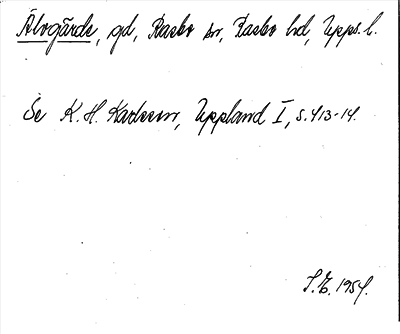 Älvgärde, gd, Rasbo sn, Rasbo hd, Upps. l.
Se K. H. Karlsson, Uppland I, s. 413-14.
S. E. 1954.